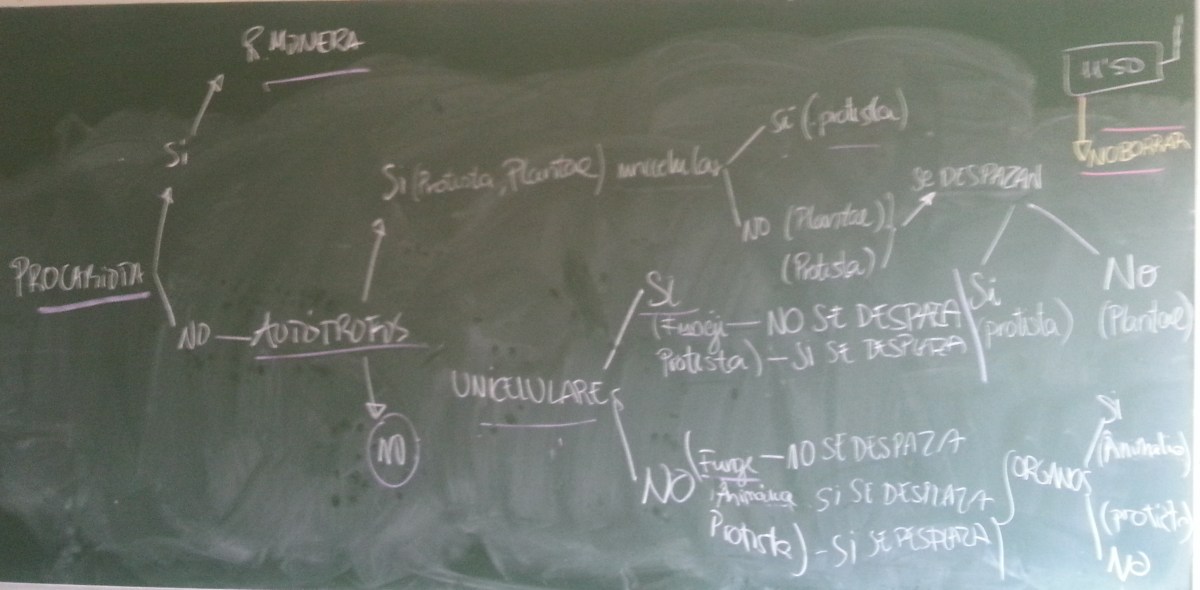 R. MONERA
11'50
NO BORRAR
Si
Si (protista)
Si (Protista, Plantae) unicelular
SE DESPAZAN
NO (Plantae)
(Protista)
PROCARIOTA
NO — AUTÓTROFOS
SI
(Fungi — NO SE DESPAZA
Protista) — SI SE DESPLAZA
Si
(protista)
NO
(Plantae)
UNICELULARES
NO
NO
(Funge — NO SE DESPAZA
Animalia SI SE DESPLAZA
Protista) — SI SE DESPLAZA
ORGANOS
Si
(Animalia)
(protista)
NO